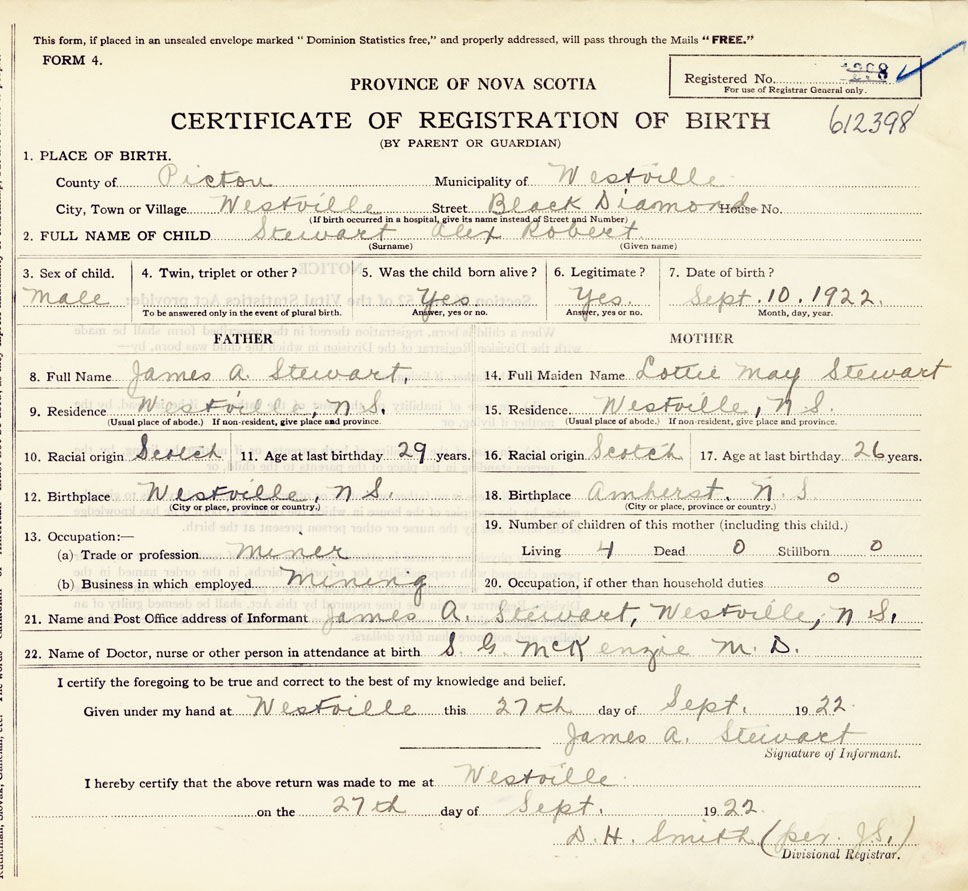 This form, if placed in an unsealed envelope marked "Dominion Statistics free," and properly addressed, will pass through the Mails "FREE."
FORM 4.
PROVINCE OF NOVA SCOTIA
Registered No.
For use of Registrar General only.
CERTIFICATE OF REGISTRATION OF BIRTH 612398
(BY PARENT OR GUARDIAN)
1. PLACE OF BIRTH.
County of Pictou Municipality of Westville
City, Town or Village Westville Street Black Diamond House No.
(If birth occurred in a hospital, give its name instead of Street and Number)
2. FULL NAME OF CHILD Stewart Alex Robert
(Surname) (Given name)
3. Sex of child. 4. Twin, triplet or other? 5. Was the child born alive? 6. Legitimate? 7. Date of birth?
Male Yes Yes. Sept. 10. 1922.
To be answered only in the event of plural birth. Answer, yes or no. Answer, yes or no. Month, day, year.
FATHER MOTHER
8. Full Name James A. Stewart, 14. Full Maiden Name Lottie May Stewart
9. Residence Westville, N.S. 15. Residence. Westville, N.S.
(Usual place of abode.) If non-resident, give place and province. (Usual place of abode.) If non-resident, give place and province.
10. Racial origin Scotch 11. Age at last birthday 29 years. 16. Racial origin Scotch 17. Age at last birthday 26 years.
12. Birthplace Westville, N.S. 18. Birthplace Amherst. N.S.
(City or place, province or country.) (City or place, province or country.)
13. Occupation:— 19. Number of children of this mother (including this child.)
(a) Trade or profession Miner Living 4 Dead 0 Stillborn 0
(b) Business in which employed Mining 20. Occupation, if other than household duties 0
21. Name and Post Office address of Informant James A. Stewart, Westville, N.S.
22. Name of Doctor, nurse or other person in attendance at birth S. G. McKenzie M.D.
I certify the foregoing to be true and correct to the best of my knowledge and belief.
Given under my hand at Westville this 27th day of Sept. 1922.
James A. Stewart
Signature of Informant.
I hereby certify that the above return was made to me at Westville
on the 27th day of Sept. 1922.
D. H. Smith (per. J.S.)
Divisional Registrar.